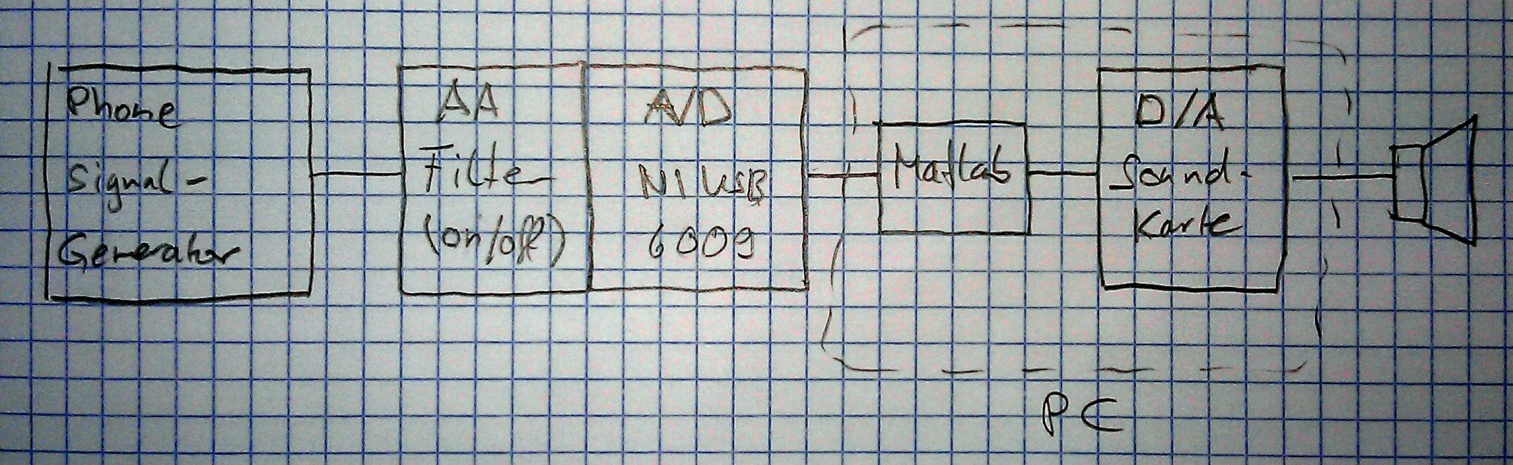 Phone
Signal-
Generator
AA
Filter
(on/off)
A/D
NI USB
6009
Matlab
D/A
Sound-
Karte
PC